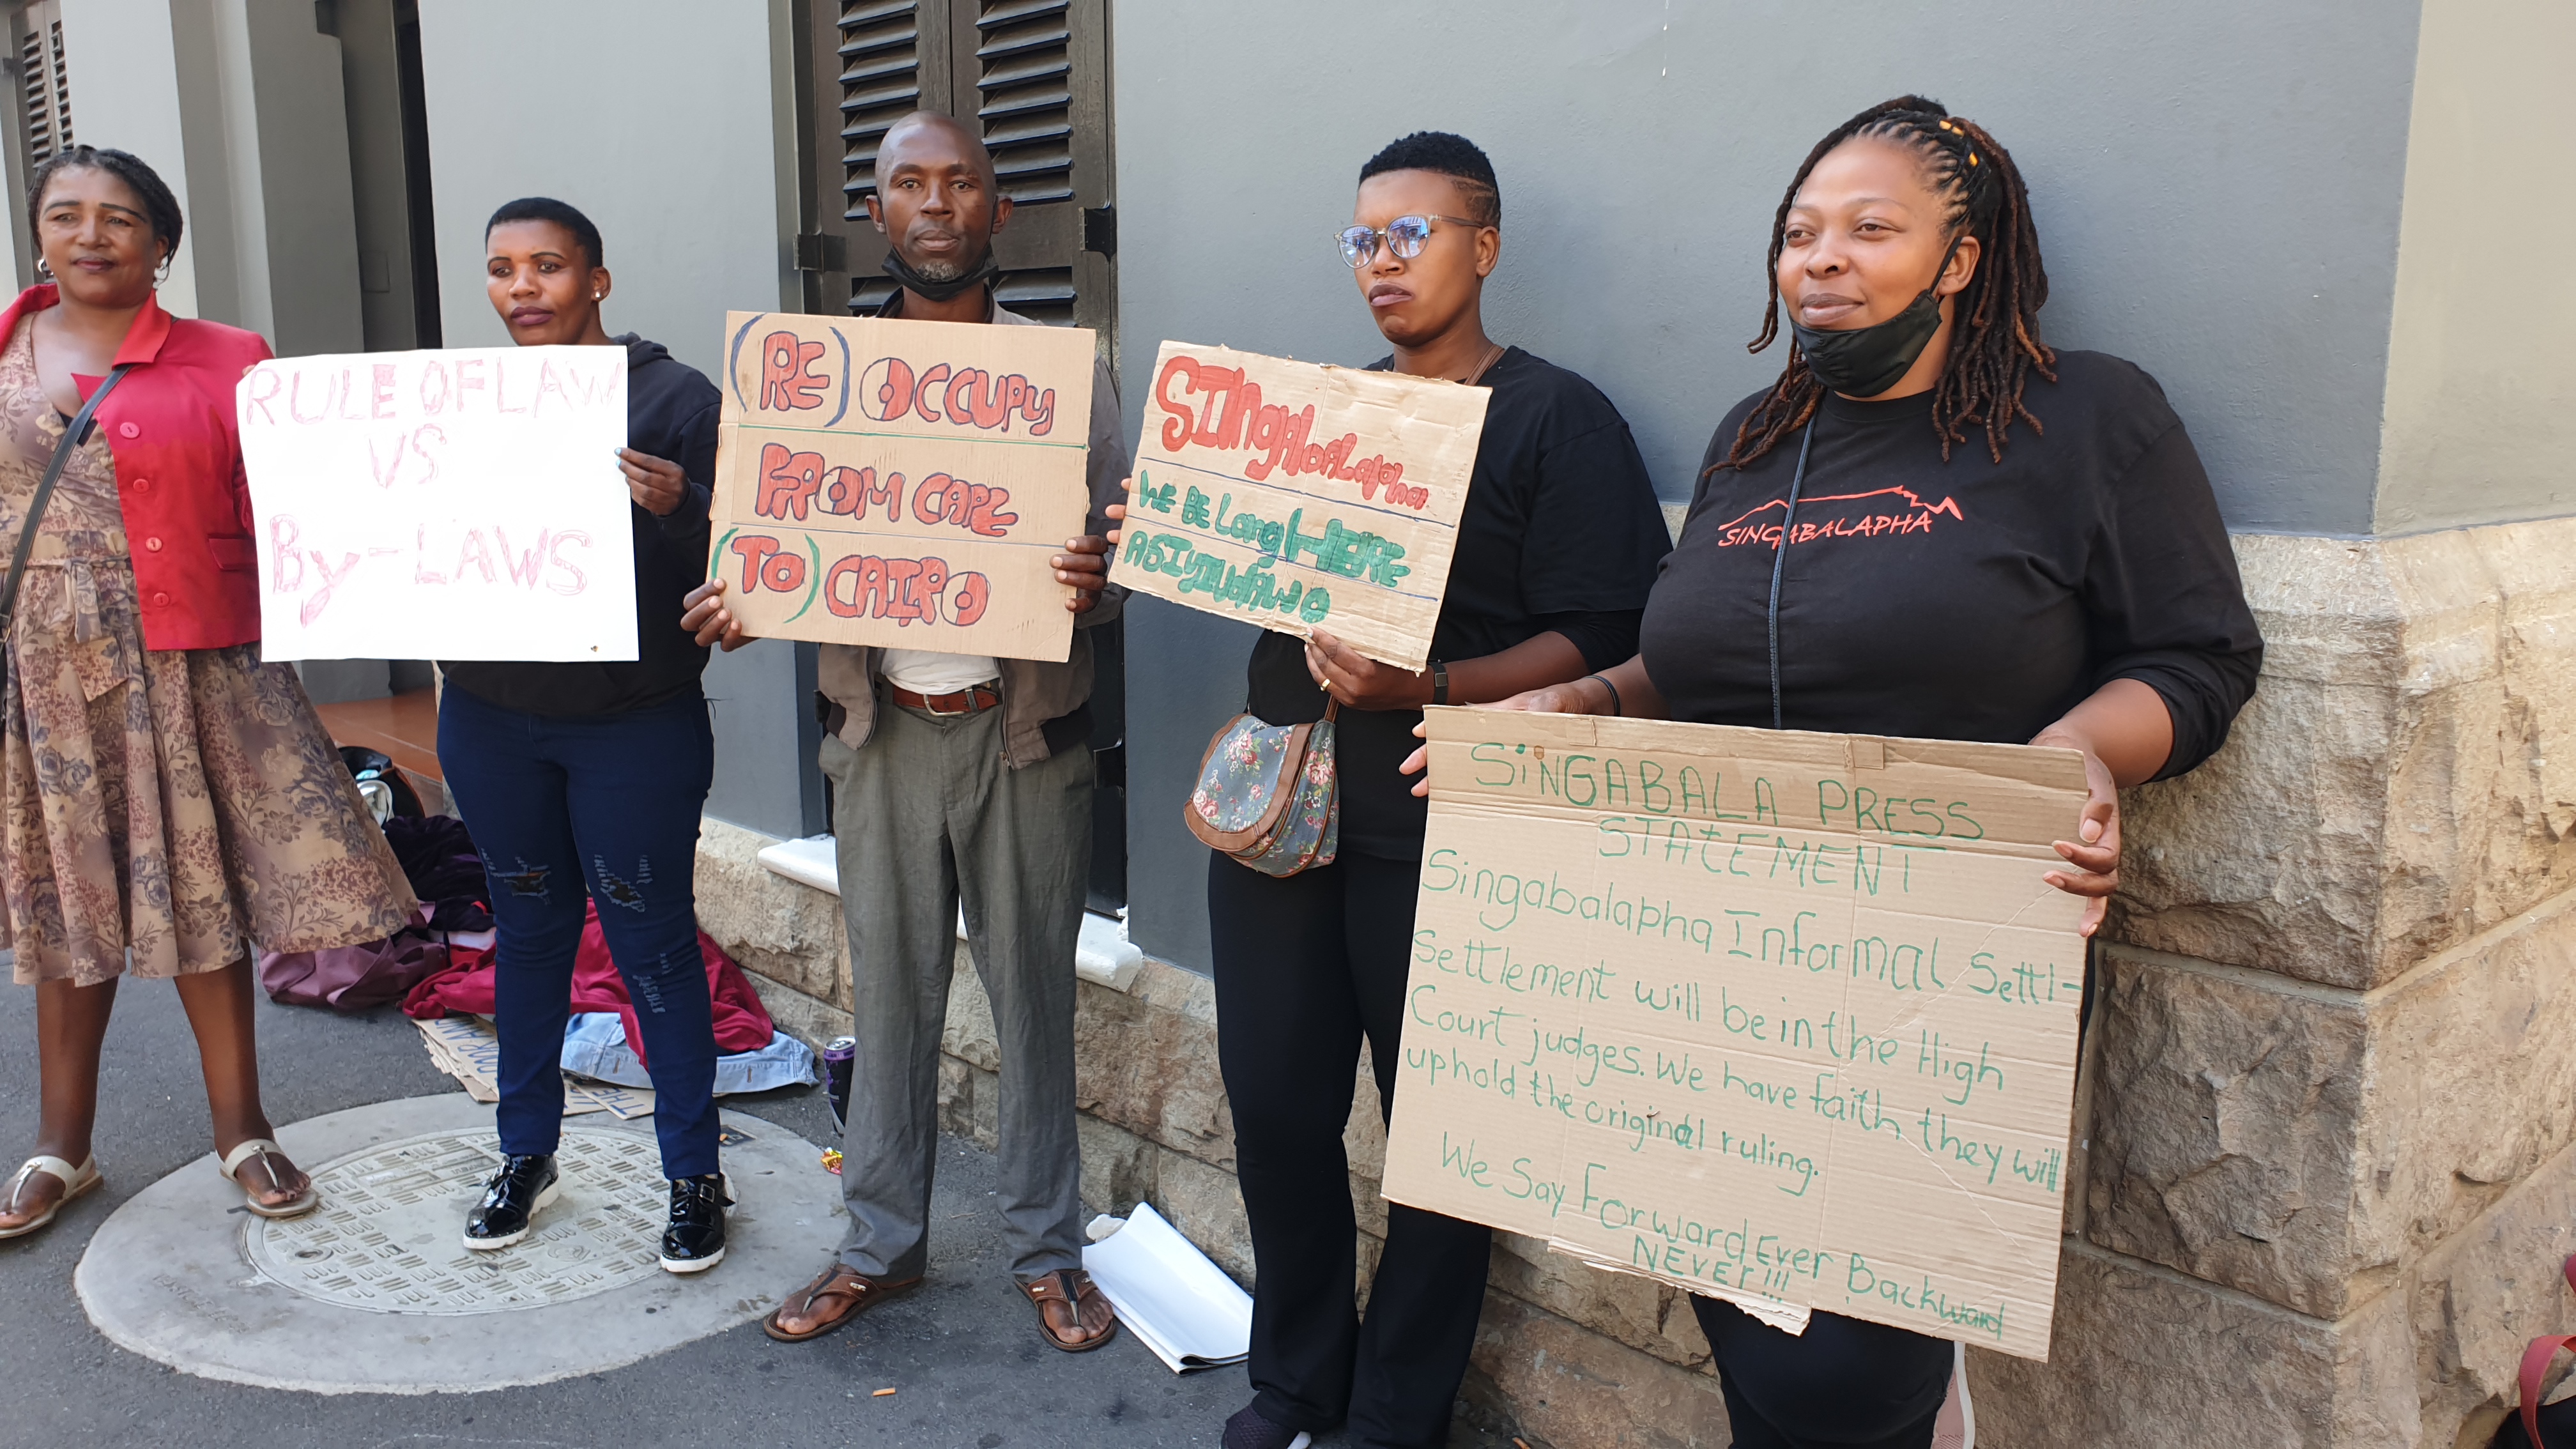 RULE OF LAW
VS
By-LAWS
(RE) OCCUPY
FROM CAPE
(TO) CAIRO
SINgAbaLapha
WE BE Long HERE
ASIYINdAWO
SINGABALAPHA
SiNGABALA PRESS
STATEMENT
Singabalapha Informal Settl-
Settlement will be in the High
Court judges. We have faith they will
uphold the original ruling.
We Say Forward Ever Backward
NEVEr!!!
THE